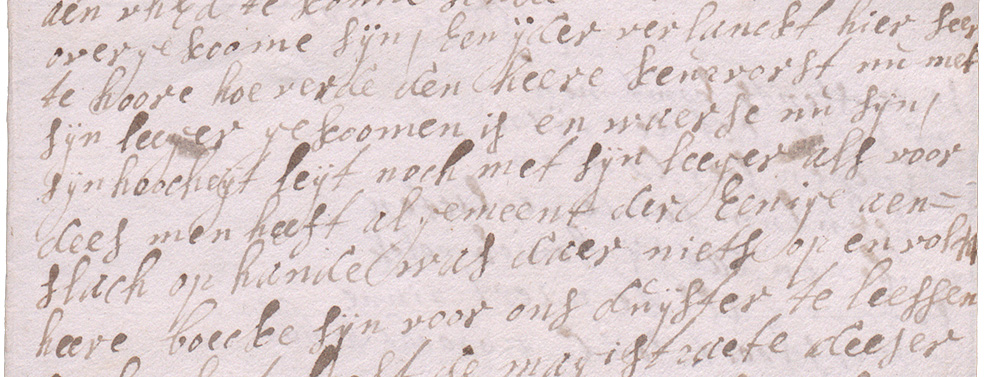 overgekoome sijn, Een ijder verlanckt hier seer
te hoore hoe verde den heere keurvorst nu met
sijn leeger gekoomen is en waer se nu sijn,
sijn hoocheyt leyt noch met sijn leeger als voor
dees men heeft algemeent der Eenige aen=
slach op hande was daer niets op en volcht
heere boecke sijn voor ons duyster te leessen
de magistraete deeser